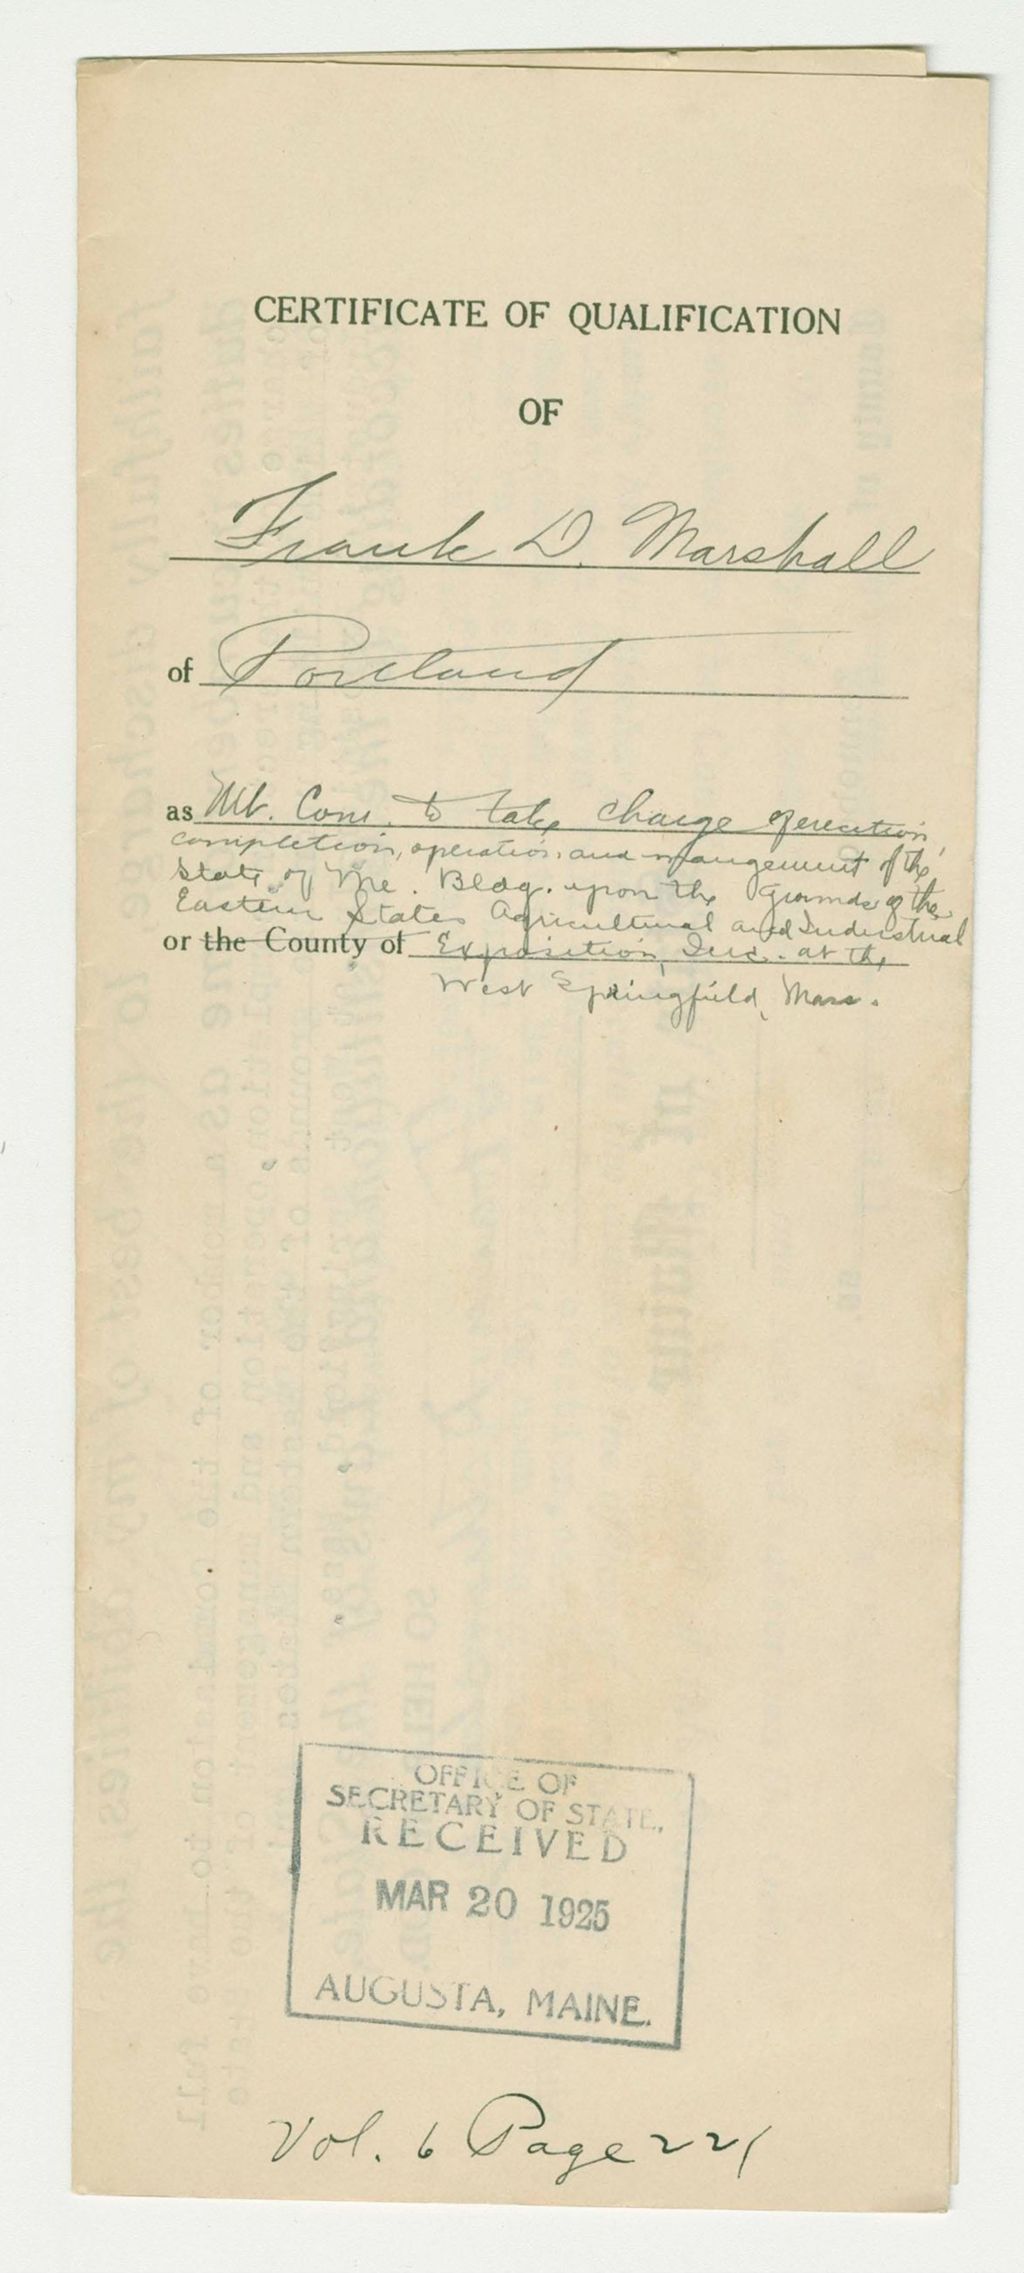 CERTIFICATE OF QUALIFICATION
OF
Frank D. Marshall
of Portland
as Mb. Com. to take charge of erection,
completion, operation and mangement of the
State of Me. Bldg. upon the Grounds of the
Eastern States Agricultural and Industrial
or the County of Exposition, Inc. at the
West Springfield, Mass.
OFFICE OF
SECRETARY OF STATE,
RECEIVED
MAR 20 1925
AUGUSTA, MAINE.
Vol. 6 Page 221